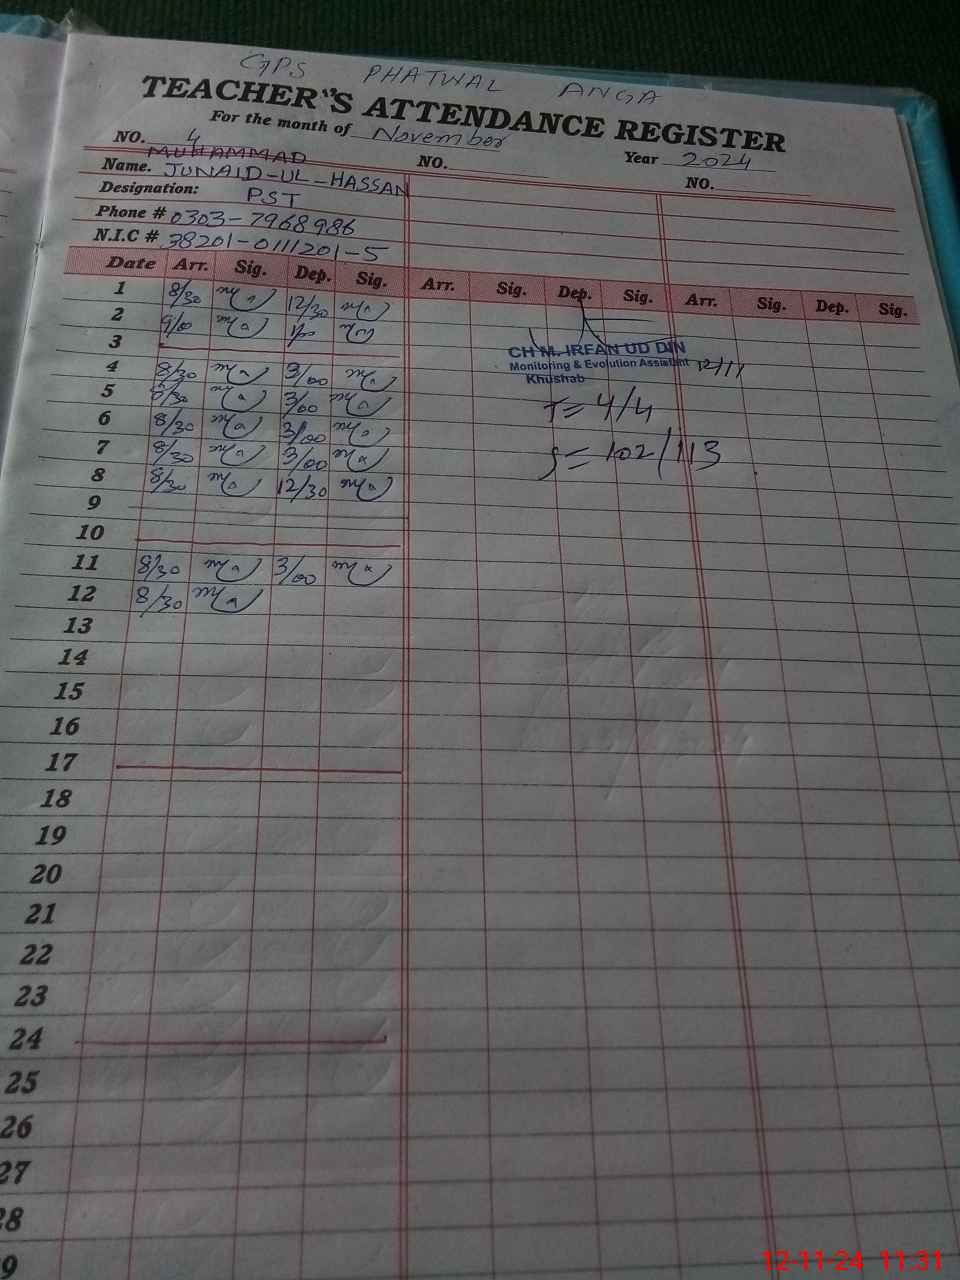 GPS PHATWAL ANGA
TEACHER"S ATTENDANCE REGISTER
For the month of November
NO. 4 NO. Year 2024
MUHAMMAD
Name. JUNAID-UL-HASSAN NO.
Designation: PST
Phone # 0303-7968986
N.I.C # 38201-0111201-5
Date Arr. Sig. Dep. Sig. Arr. Sig. Dep. Sig. Arr. Sig. Dep. Sig.
1 8/30 12/30
2 9/00
3
CH M. IRFAN UD DIN
Monitoring & Evolution Assistant 12/11
Khushab
4 8/30 3/00
5 8/30 3/00 T=4/4
6 8/30 3/00
7 8/30 3/00 S=102/113
8 8/30 12/30
9
10
11 8/30 3/00
12 8/30
13
14
15
16
17
18
19
20
21
22
23
24
25
26
27
28
9
12-11-24 11:31